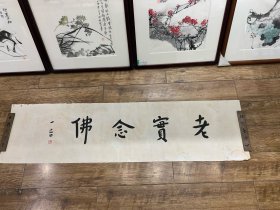 老實念佛